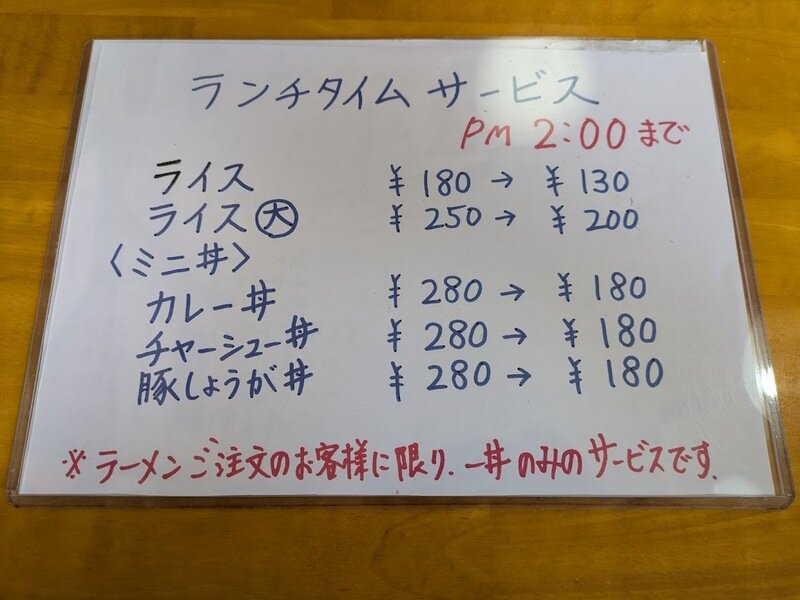 ランチタイム サービス
PM 2:00 まで
ライス ¥180 → ¥130
ライス㊛ ¥250 → ¥200
〈ミニ丼〉
カレー丼 ¥280 → ¥180
チャーシュー丼 ¥280 → ¥180
豚しょうが丼 ¥280 → ¥180
※ラーメンご注文のお客様に限り、一丼のみのサービスです。